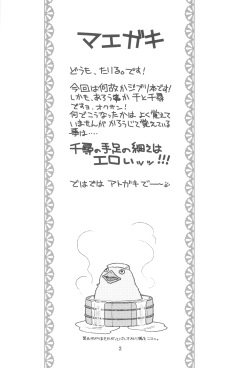 マエガキ
どうも、たりる。です!
今回は何故かジブリ本です!
しかも、あろう事か千と千尋
ですョ、オクサン!
何でこうなったかは よく覚えて
いませんが かろうじて覚えている
事は……
千尋の手足の細さは
エロいッッ!!!
ではでは アトガキでー〜
2